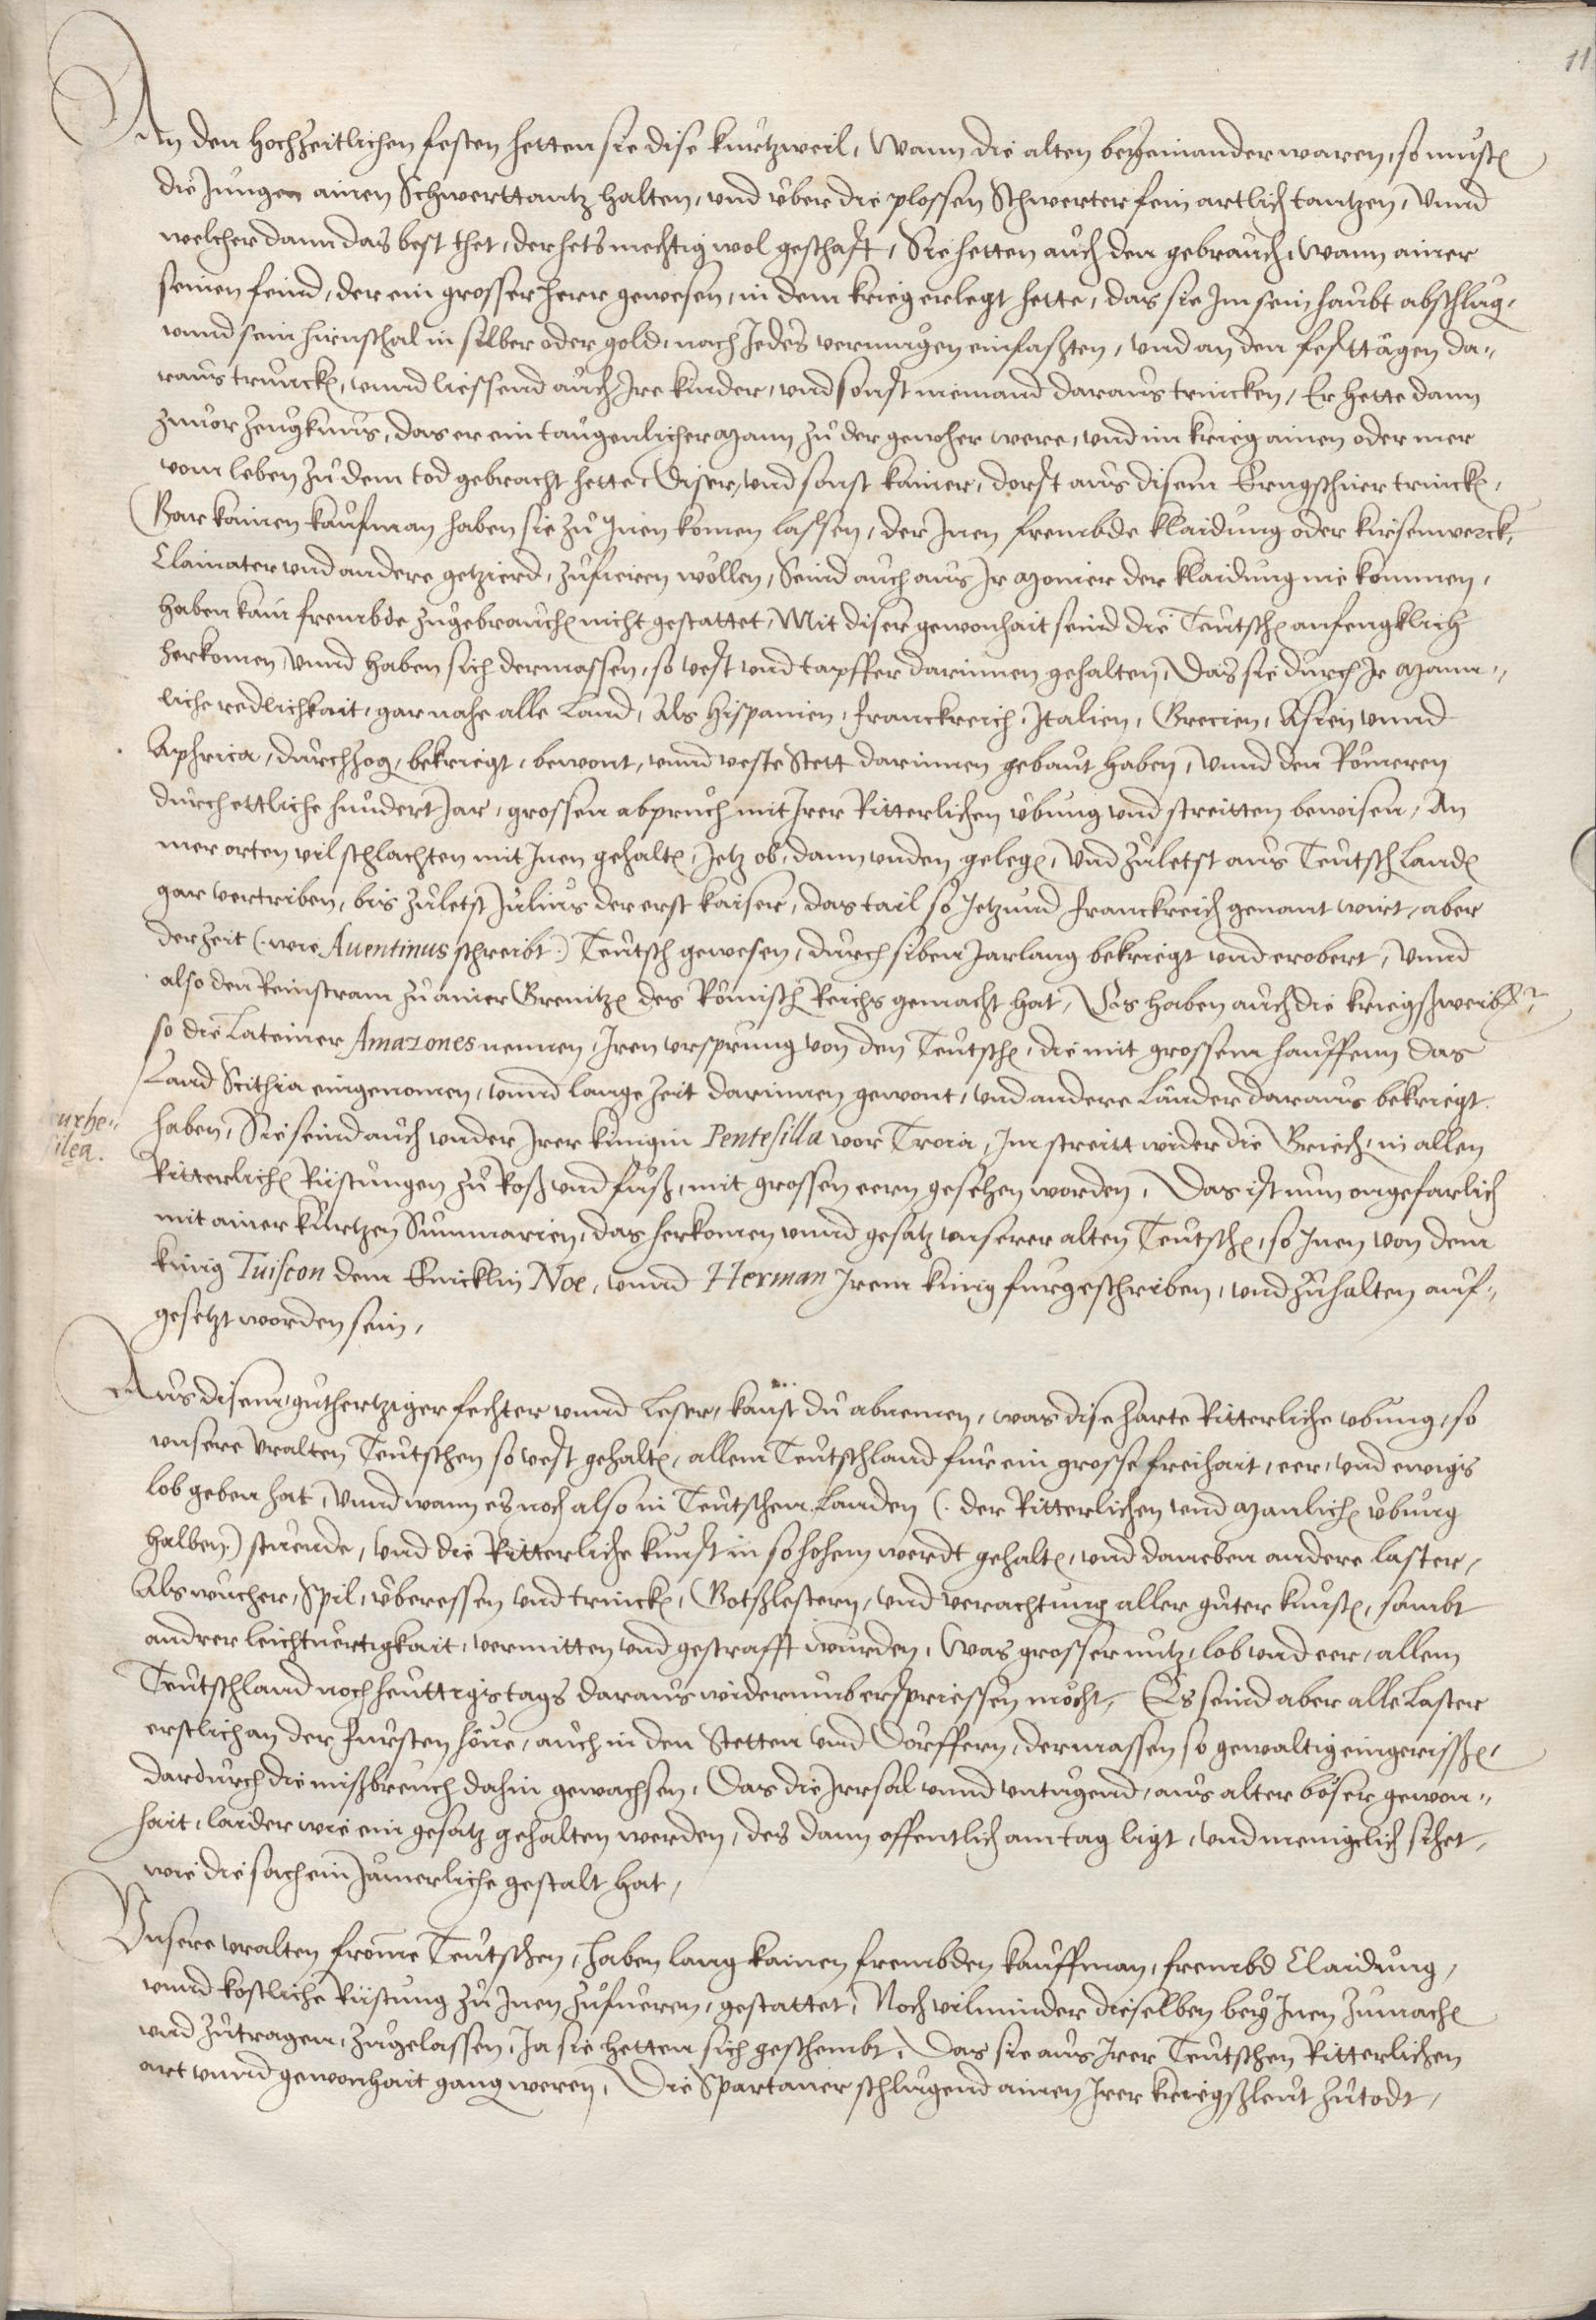 11
An den Hochzeitlichen festen hetten sie dise kurtzweil, Wann die alten beyeinander waren, so mustẽ
die Jungen ainen Schwerttantz halten, und über die plossen Schwerter fein artlich tantzen, Unnd
welcher dann das best thet, der hets mechtig wol geschafft, Sie hetten auch den gebrauch, wann ainer
seinen feind, der ein grosser Herr gewesen, in dem krieg erlegt hette, das sie Im sein haubt abschlug,
unnd sein hirnschal in silber oder gold, nach Jedes vermugen einfaßten, und an den festtägen da„
raus trunckẽ, unnd liessend auch Ire kinder, und sonst niemand daraus trincken, Er hette dann
zuvor zeugknus, das er ein taugenlicher Mann zu der gewher were, und im krieg ainen oder mer
vom leben zu dem tod gebracht hette. Diser, und sonst kainer, dorfft aus disem trinckẽ,
Gar kainen kaufman haben sie zu Inen komen lassen, der Inen frembde klaidung oder kirsenwerck,
Clainater und andere getzierd, zufieren wöllen, Seind auch aus Ir Monier der klaidung nie kommen,
haben kain frembde zugebrauchẽ nicht gestattet, Mit diser gewonhait seind die Teutschẽ anfengklich
herkomen, unnd haben sich dermassen, so vest und tapffer darinnen gehalten, Das sie durch Ir Mann„
liche redlichkait, gar nahe alle Land, Als Hispanien, Franckreich, Italien, Grecien, Asien unnd
Aphrica, durchzog, bekriegt, bewont, unnd veste Stett darinnen gebaut haben, Unnd den Römeren
durch ettliche hundert Jar, grossen abpruch mit Irer Ritterlichen übung und streitten bewisen, An
mer orten vil schlachten mit Inen gehaltẽ, Jetz ob, dann unden gelegẽ, Und zuletst aus Teutsch Landẽ
gar vertriben, bis zuletst Julius der erst kaiser, das tail so Jetzund Franckreich genant wirt, aber
der zeit (. wie Auentinus schreibt .) Teutsch gewesen, durch siben Jar lang bekriegt und erobert, Unnd
also den Reinstram zu ainer Grenitzẽ des Römischẽ Reichs gemacht hat, Es haben auch die kriegßweiber
so die Lateiner Amazones nennen, Iren ursprung von den Teutschẽ, die mit grossem hauffenn das
Land Scithia eingenomen, unnd lange zeit darinnen gewont, und andere Länder daraus bekriegt
haben, Sie seind auch under Irer kungin Pentesilla vor Troia, Im streitt wider die Griechẽ, in allen
Ritterlichẽ Rüstungen zu Roß und fuß, mit grossen eern gesehen worden, Das ist nun ongefarlich
mit ainer kurtzen Summarien, das herkomen unnd gesatz unserer alten Teutschẽ, so Inen von dem
künig Tuiscon dem Enicklin Noe, unnd Herman Irem künig furgeschriben, und zuhalten auf„
gesetzt worden sein,
Aus disem, guthertziger fechter unnd Leser, kanst du abnemen, was dise harte Ritterliche ubung, so
unsere uralten Teutschen so vest gehaltẽ, allem Teutschland für ein grosse freihait, eer, und ewigs
lob geben hat, Unnd wann es noch also in Teutschen Landen (. der Ritterlichen und Manlichẽ übung
halben .) stuende, und die Ritterliche kunst in so hohem werdt gehaltẽ, und daneben andere laster,
Als wucher, Spil, überessen und trinckẽ, Gotßlestern, und verachtung aller guter kunstẽ, sambt
andrer leichtvertigkait, vermitten und gestrafft wurden, Was grosser nutz, lob und eer, allem
Teutschland noch heuttigistags daraus widerumb erspriessen möcht, Es seind aber alle Laster
erstlich an der Fursten höve, auch in den Stetten und Dörffern, dermassen so gewaltig eingerissẽ,
dardurch die mißbreuch dahin gewachsen, Das die Irrsal unnd untugend, aus alter böser gewon„
hait, laider wie ein gesatz gehalten werden, des dann offentlich am tag ligt, und menigclich sihet,
wie die sach ein Jämerliche gestalt hat,
Unsere uralten frome Teutschen, haben lang kainen frembden kauffman, frembd Claidung,
unnd kostliche Rüstung zu Inen zufueren, gestattet, Noch vilminder dieselben bey Inen zumachẽ
und zutragen, zugelassen, Ja sie hetten sich geschembt, Das sie aus Irer Teutschen Ritterlichen
art unnd gewonhait gang weren, Die Spartaner schlugend ainen Irer kriegßleut zutodt,